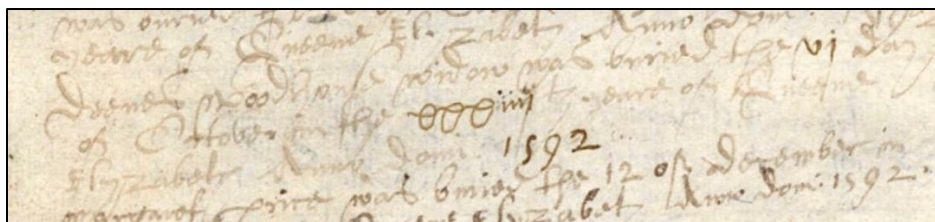 was buried
yeare of Queene Elizabeth Anno dom 1592
Woodhouse widow was buried the vi day
of October in the xxxiiij yeare of Queene
Elyzabeth Anno dom 1592
Margaret price was buried the 12 of december in
Elyzabet Anno dom 1592